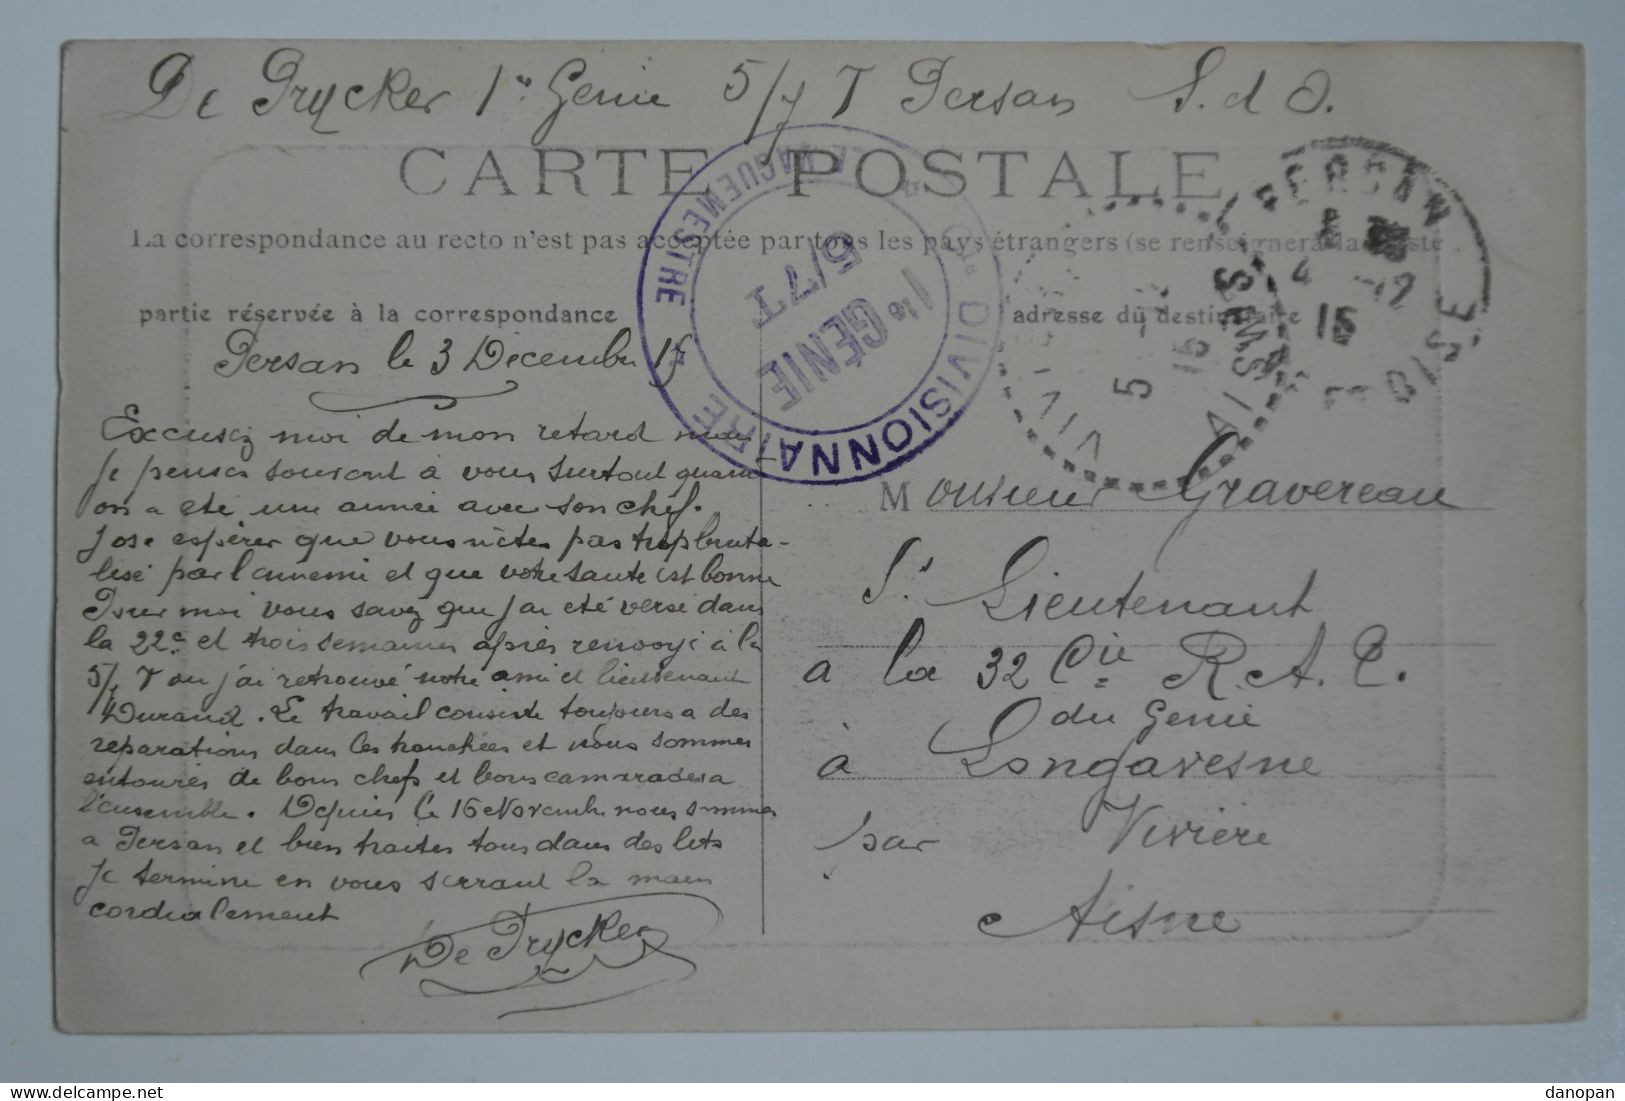 De Prycker 1er Génie 5/7 T Persan S. d O.
CARTE POSTALE
La correspondance au recto n'est pas acceptée par tous les pays étrangers (se renseigner à la Poste
partie réservée à la correspondance
adresse du destinataire
Persan le 3 Décembre 15
Excusez moi de mon retard mais
je penses souvant à vous surtout quand
on a eté une année avec son chef.
J ose espérer que vous n'êtes pas trop bruta-
lisé par l'ennemi et que votre sante est bonne
Pour moi vous savez que j'ai eté versé dans
la 22e et trois semaines après renvoyé à la
5/7 T ou j'ai retrouvé notre ami et lieutenant
Durand. Le travail consiste toujours a des
reparations dans les tranchées et nous sommes
entourés de bons chefs et bons camarades a
l'ensemble. Depuis le 16 Novembre nous sommes
a Persan et bien traites tous dans des lits
Je termine en vous serrant la main
cordialement
De Prycker
Monsieur Gravereau
S. Lieutenant
à la 32 Cie R. A. T.
du Génie
à Longavesne
par Vivière
Aisne
DIVISIONNAIRE
LE VAGUEMESTRE
1er GÉNIE
5/7T
PERSAN
4 -12
15
S ET OISE
5
15
AISNE
danopan